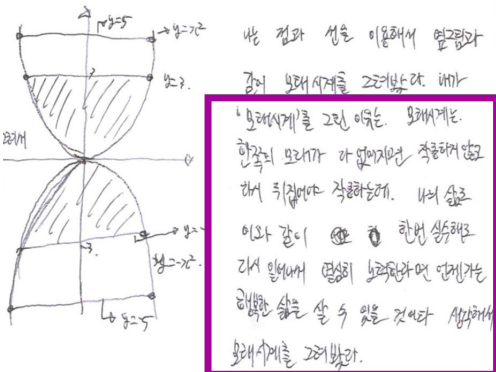 y=5
y=x²
y=3
y=-x²
y=-5
나는 점과 선을 이용해서 옆그림과
같이 모래시계를 그려봤다. 내가
'모래시계'를 그린 이유는. 모래시계는.
한쪽의 모래가 다 없어지면 작동하지 않고
다시 뒤집어야 작동하는데. 나의 삶도
이와 같이 한번 실수해도
다시 일어나서 열심히 노력한다면 언젠가는
행복한 삶을 살 수 있을 것이다 생각해서
모래시계를 그려봤다.